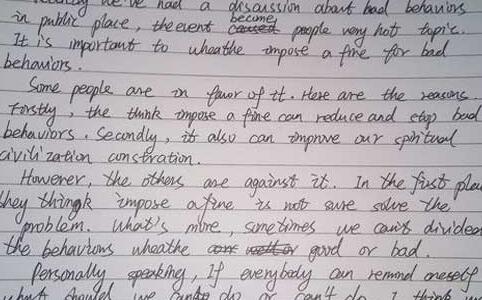 we've had a discussion about bad behaviors
in public place, the event become people very hot topic.
It is important to wheathe impose a fine for bad
behaviors.
Some people are in favor of it. Here are the reasons.
Firstly, the think impose a fine can reduce and stop bad
behaviors. Secondly, it also can improve our spiritual
civilization constration.
However, the others are against it. In the first place
they thingk impose a fine is not sure solve the
problem. What's more, sometimes we can't divided
the behaviors wheathe good or bad.
Personally speaking, If everybody can remind oneself
what should we do or can't do, I think